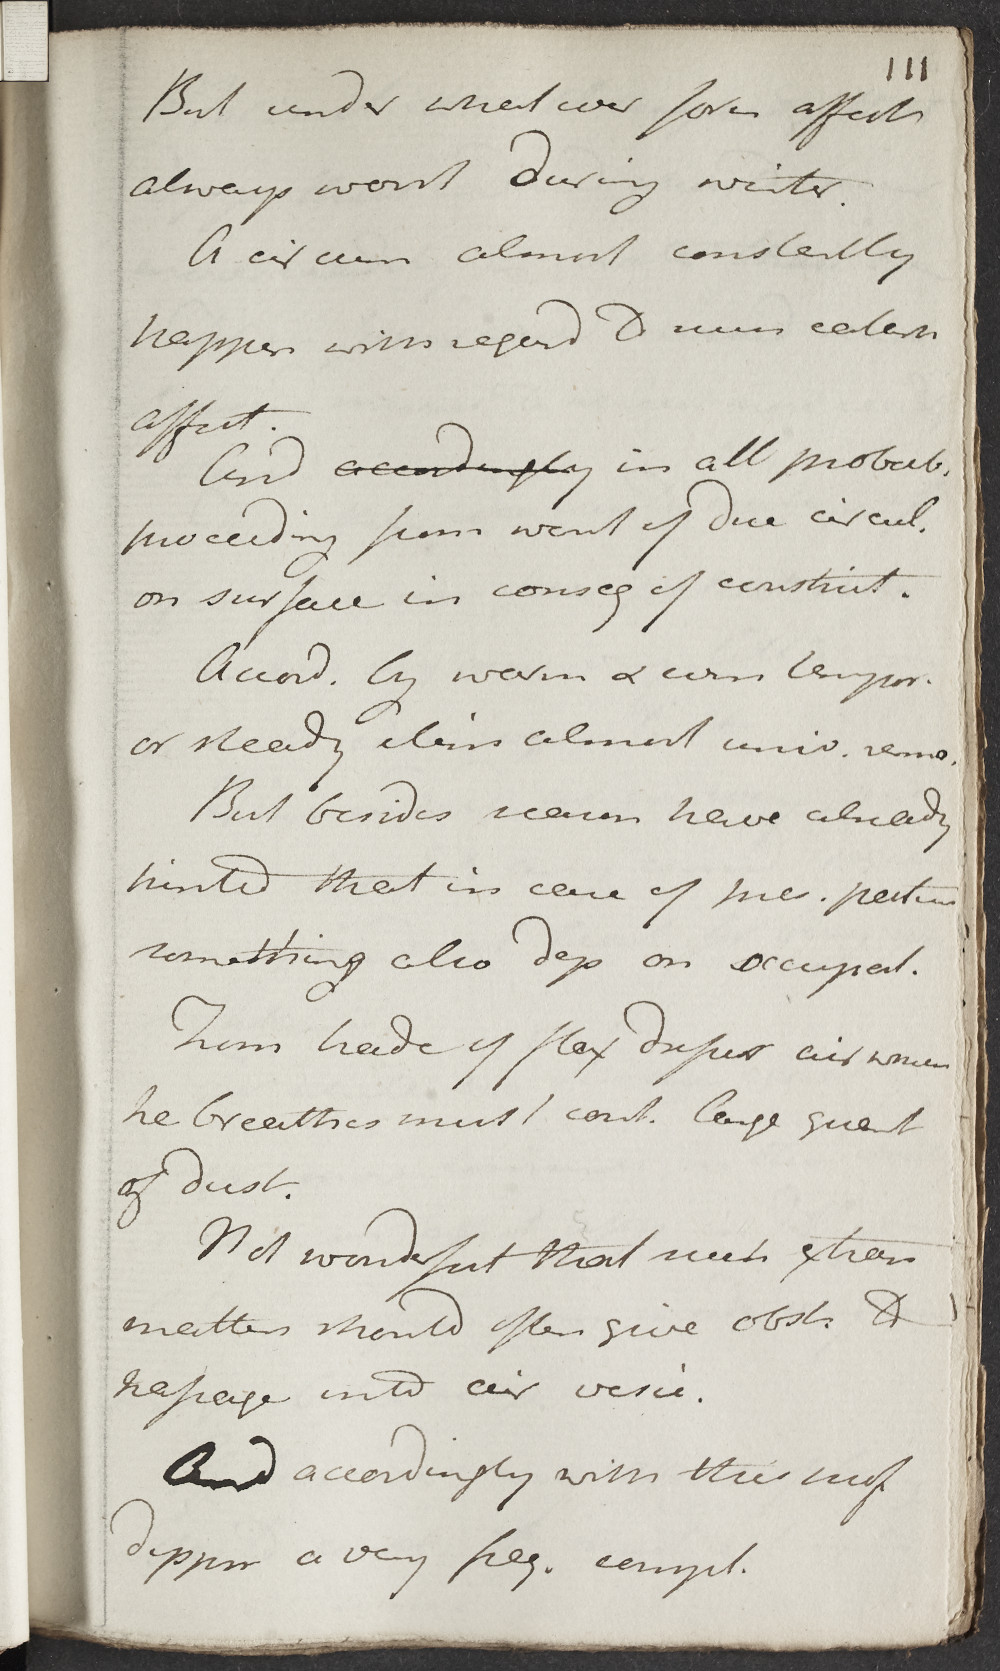 111
But under whatever form affects
always worst during winter.
A circum almost constantly
happens with regard to cutan
affect.
And accordingly in all probab.
proceeding from want of due circul.
on surface in conseq of constrict.
Accord. by warm & temper.
or steady almost univ. remo.
But besides season have already
hinted that in case of pres. patient
something also dep on occupat.
From trade of flax dresser air which
he breathes must cont. large quant
of dust.
Not wonderful that such extran
matters should often give obst. to
passage into air vesic.
And accordingly with this
dyspn a very freq. compl.